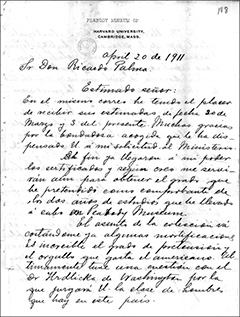 188
PEABODY MUSEUM OF
HARVARD UNIVERSITY,
CAMBRIDGE, MASS.
April 20 de 1911
Sr Don Ricardo Palma
Estimado señor:
En el mismo correo he tenido el placer
de recibir sus estimadas de fecha 20 de
Marzo y 3 del presente. Muchas gracias
por la bondadosa acogida que le ha dis-
pensado U a mi solicitud al Ministerio.
Al fin ya llegaron á mi poder
los certificados y segun creo me servi-
rán algo para obtener el grado que
he pretendido como comprobante de
los dos años de estudios que he llevado
á cabo en Peabody Museum.
El asunto de la colección vá
contándome ya algunas modificaciones.
Es increible el grado de pretension y
el orgullo que gasta el americano. Ul-
timamente tuve una cuestion con el
Dr Hrdlicka de Washington por la
que juzgará U la clase de hombres
que hay en este país.